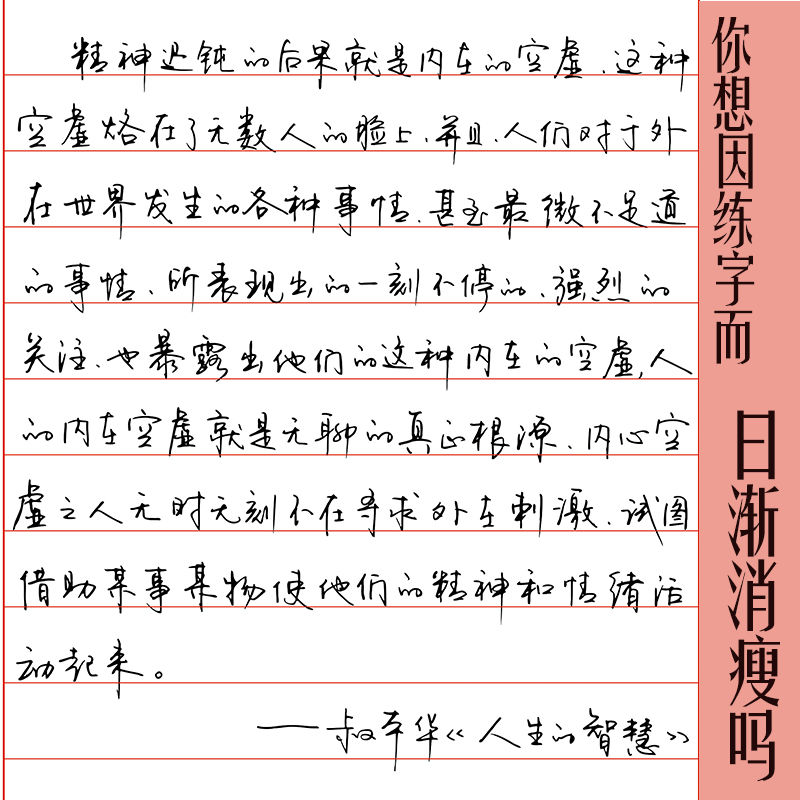 精神迟钝的后果就是内在的空虚、这种
空虚烙在了无数人的脸上、并且、人们对于外
在世界发生的各种事情、甚至最微不足道
的事情、所表现出的一刻不停的、强烈的
关注、也暴露出他们的这种内在的空虚,人
的内在空虚就是无聊的真正根源、内心空
虚之人无时无刻不在寻求外在刺激、试图
借助某事某物使他们的精神和情绪活
动起来。
——叔本华《人生的智慧》
你想因练字而
日渐消瘦吗